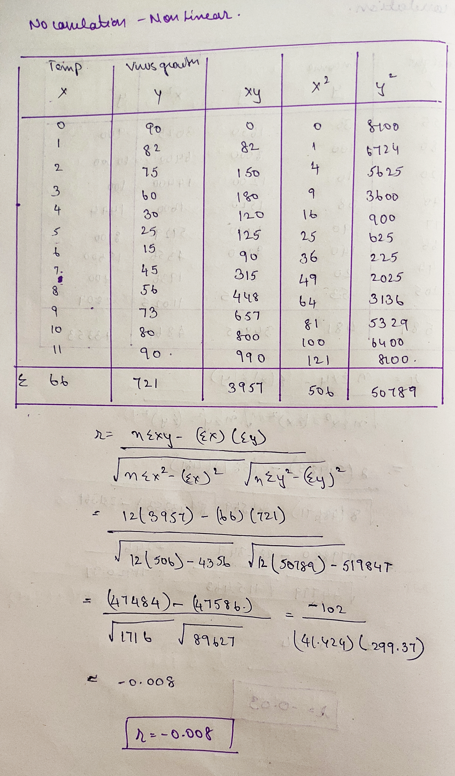 No corelation - Non Linear.
Temp Virus growth
x y xy x² y²
0 90 0 0 8100
1 82 82 1 6724
2 75 150 4 5625
3 60 180 9 3600
4 30 120 16 900
5 25 125 25 625
6 15 90 36 225
7. 45 315 49 2025
8 56 448 64 3136
9 73 657 81 5329
10 80 800 100 6400
11 90. 990 121 8100.
Σ 66 721 3957 506 50789
r = nΣxy - (Σx)(Σy) / √nΣx² - (Σx)² √nΣy² - (Σy)²
= 12(3957) - (66)(721) / √12(506) - 4356 √12(50789) - 519841
= (47484) - (47586.) / √1716 √89627 = -102 / (41.424)(299.37)
≈ -0.008
r = -0.008